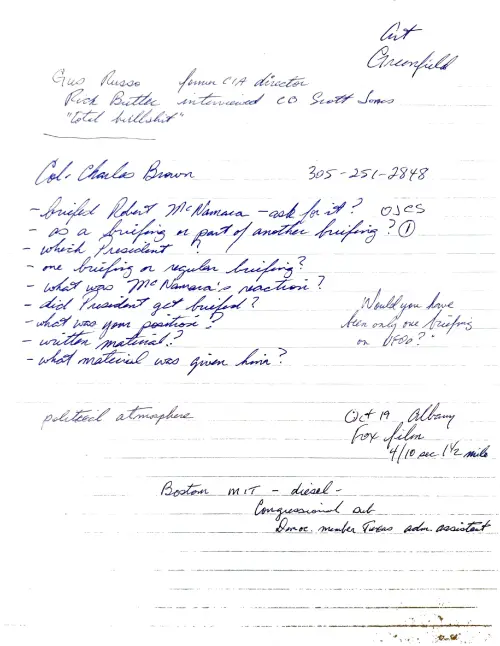 Art
Greenfield
Gus Russo former CIA director
Rick Butler interviewed CO Scott Jones
"total bullshit"
Col. Charles Brown 305-251-2848
- briefed Robert McNamara - ask for it? OJCS
- as a briefing or part of another briefing? ①
- which President?
- one briefing or regular briefing?
- what was McNamara's reaction?
- did President get briefed?
- what was your position?
- written material?
- what material was given him?
Would you have
been only one briefing
on UFOs?
political atmosphere
Oct 19 Albany
Fox film
4/10 sec 1½ mile
Boston MIT - diesel -
Congressional sub
Democ. member Texas adm. assistant